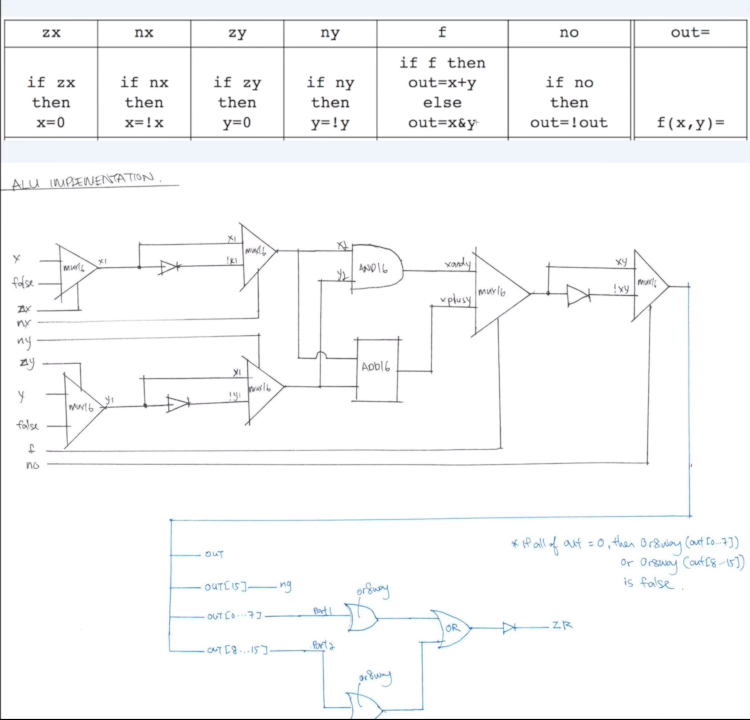 zx nx zy ny f no out=
if zx then x=0
if nx then x=!x
if zy then y=0
if ny then y=!y
if f then out=x+y else out=x&y
if no then out=!out
f(x,y)=
ALU IMPLEMENTATION.
x
false
zx
nx
ny
zy
y
false
f
no
mux16
x1
x1
!x1
mux16
mux16
y1
!y1
mux16
AND16
ADD16
xandy
xplusy
mux16
xy
!xy
OUT
OUT[15] ng
OUT[0...7] Part1
OUT[8...15] Part2
or8way
or8way
OR
ZR
* if all of out = 0, then Or8way (out[0..7])
or Or8way (out[8-15])
is false.